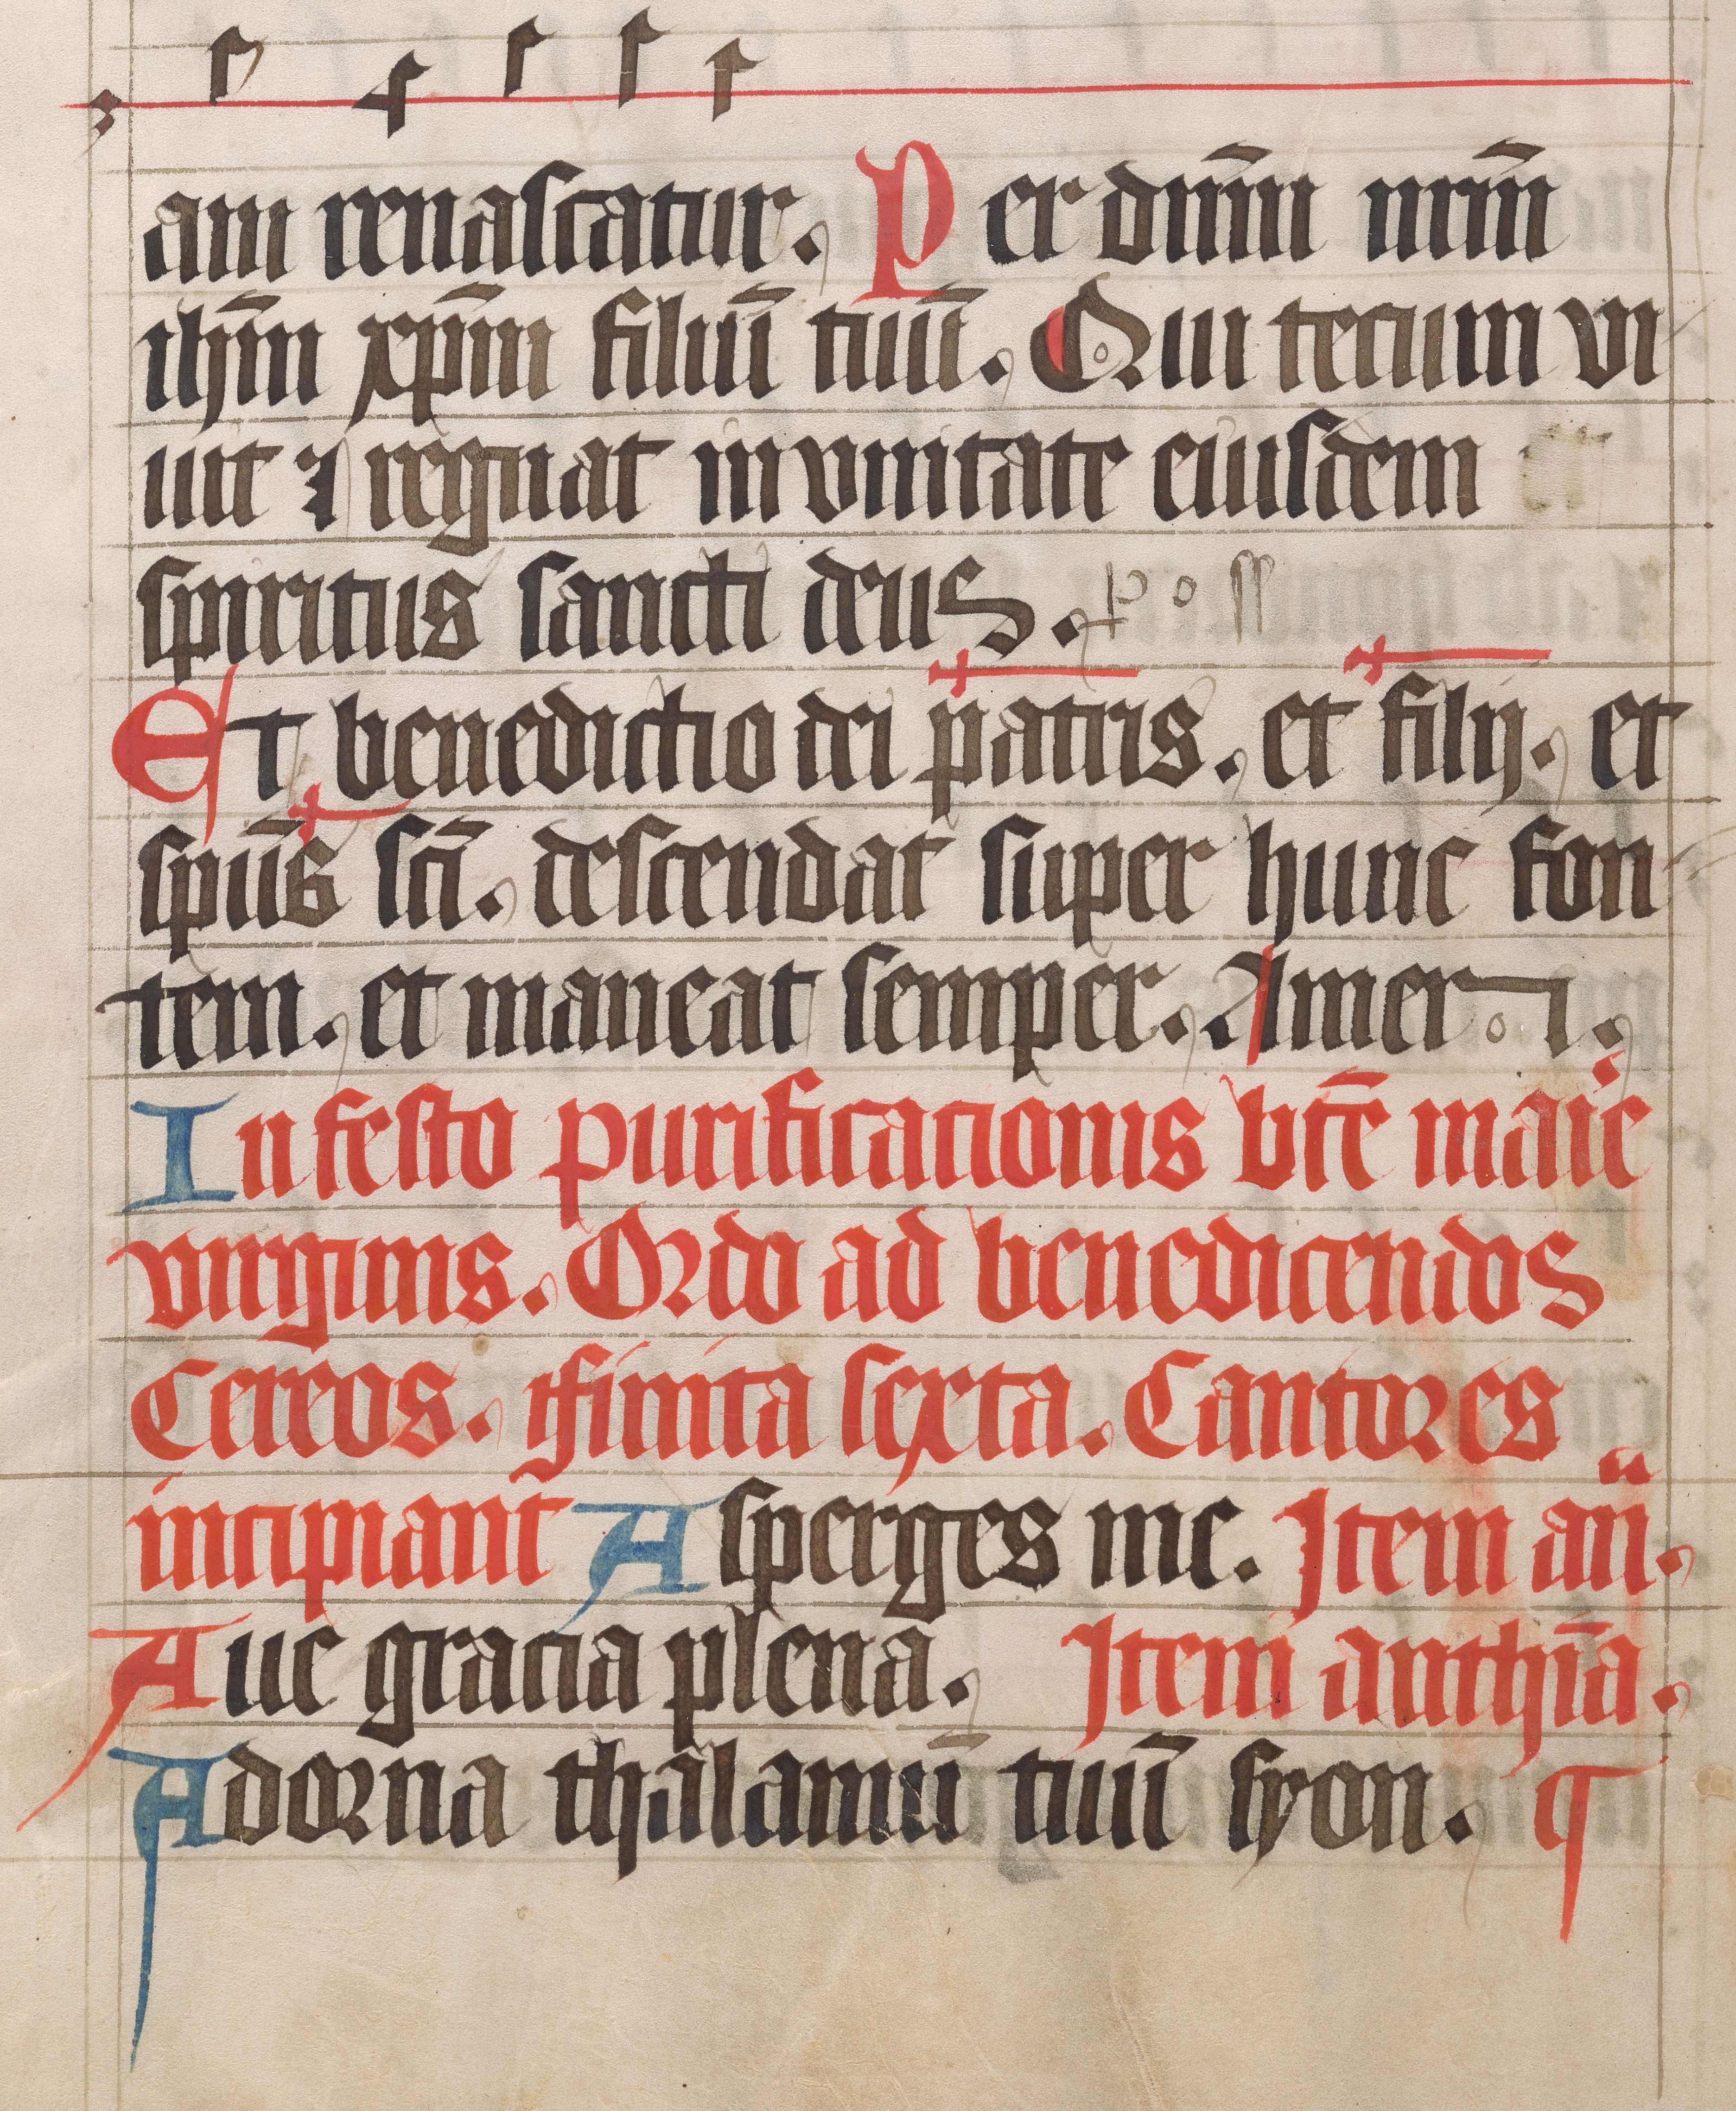 am renascatur. Per dn̄m nr̄m
ihm̄ xp̄m filiū tuū. Qui tecum vi
uit ⁊ regnat in vnitate eiusdem
spiritus sancti deus.
Et benedictio dei patris. et filij. et
spūs sc̄i. descendat super hunc fon
tem. et maneat semper. Amen.
In festo purificationis bt̄e marie
virginis. Ordo ad benedicendos
Cereos. finita sexta. Cantores
incipiant Asperges me. Item an̄.
Aue gracia plena. Item anthīa.
Adorna thalamū tuū syon.